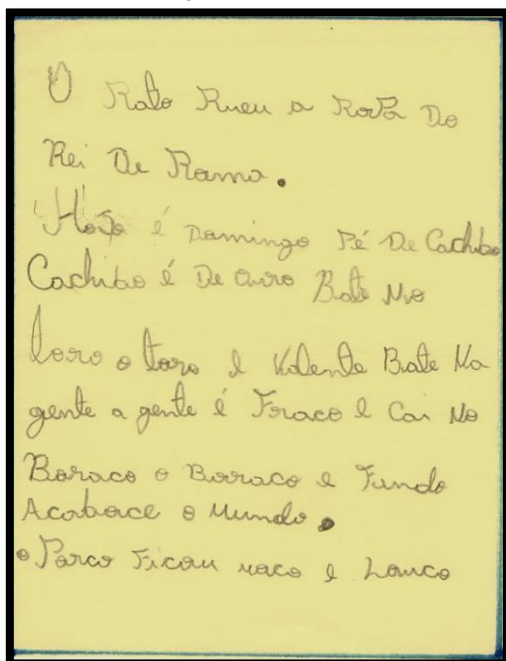 O Rato Rueu a RoPa Do
Rei De Rama.
Hoje é Domingo Pé De Cachibo
Cachibo é De Ouro Bate No
toro o toro é Valente Bate Na
gente a gente é Fraco e Cai No
Boraco o Boraco e Fundo
Acaboce o Mundo.
o Porco Ficou roco e Louco